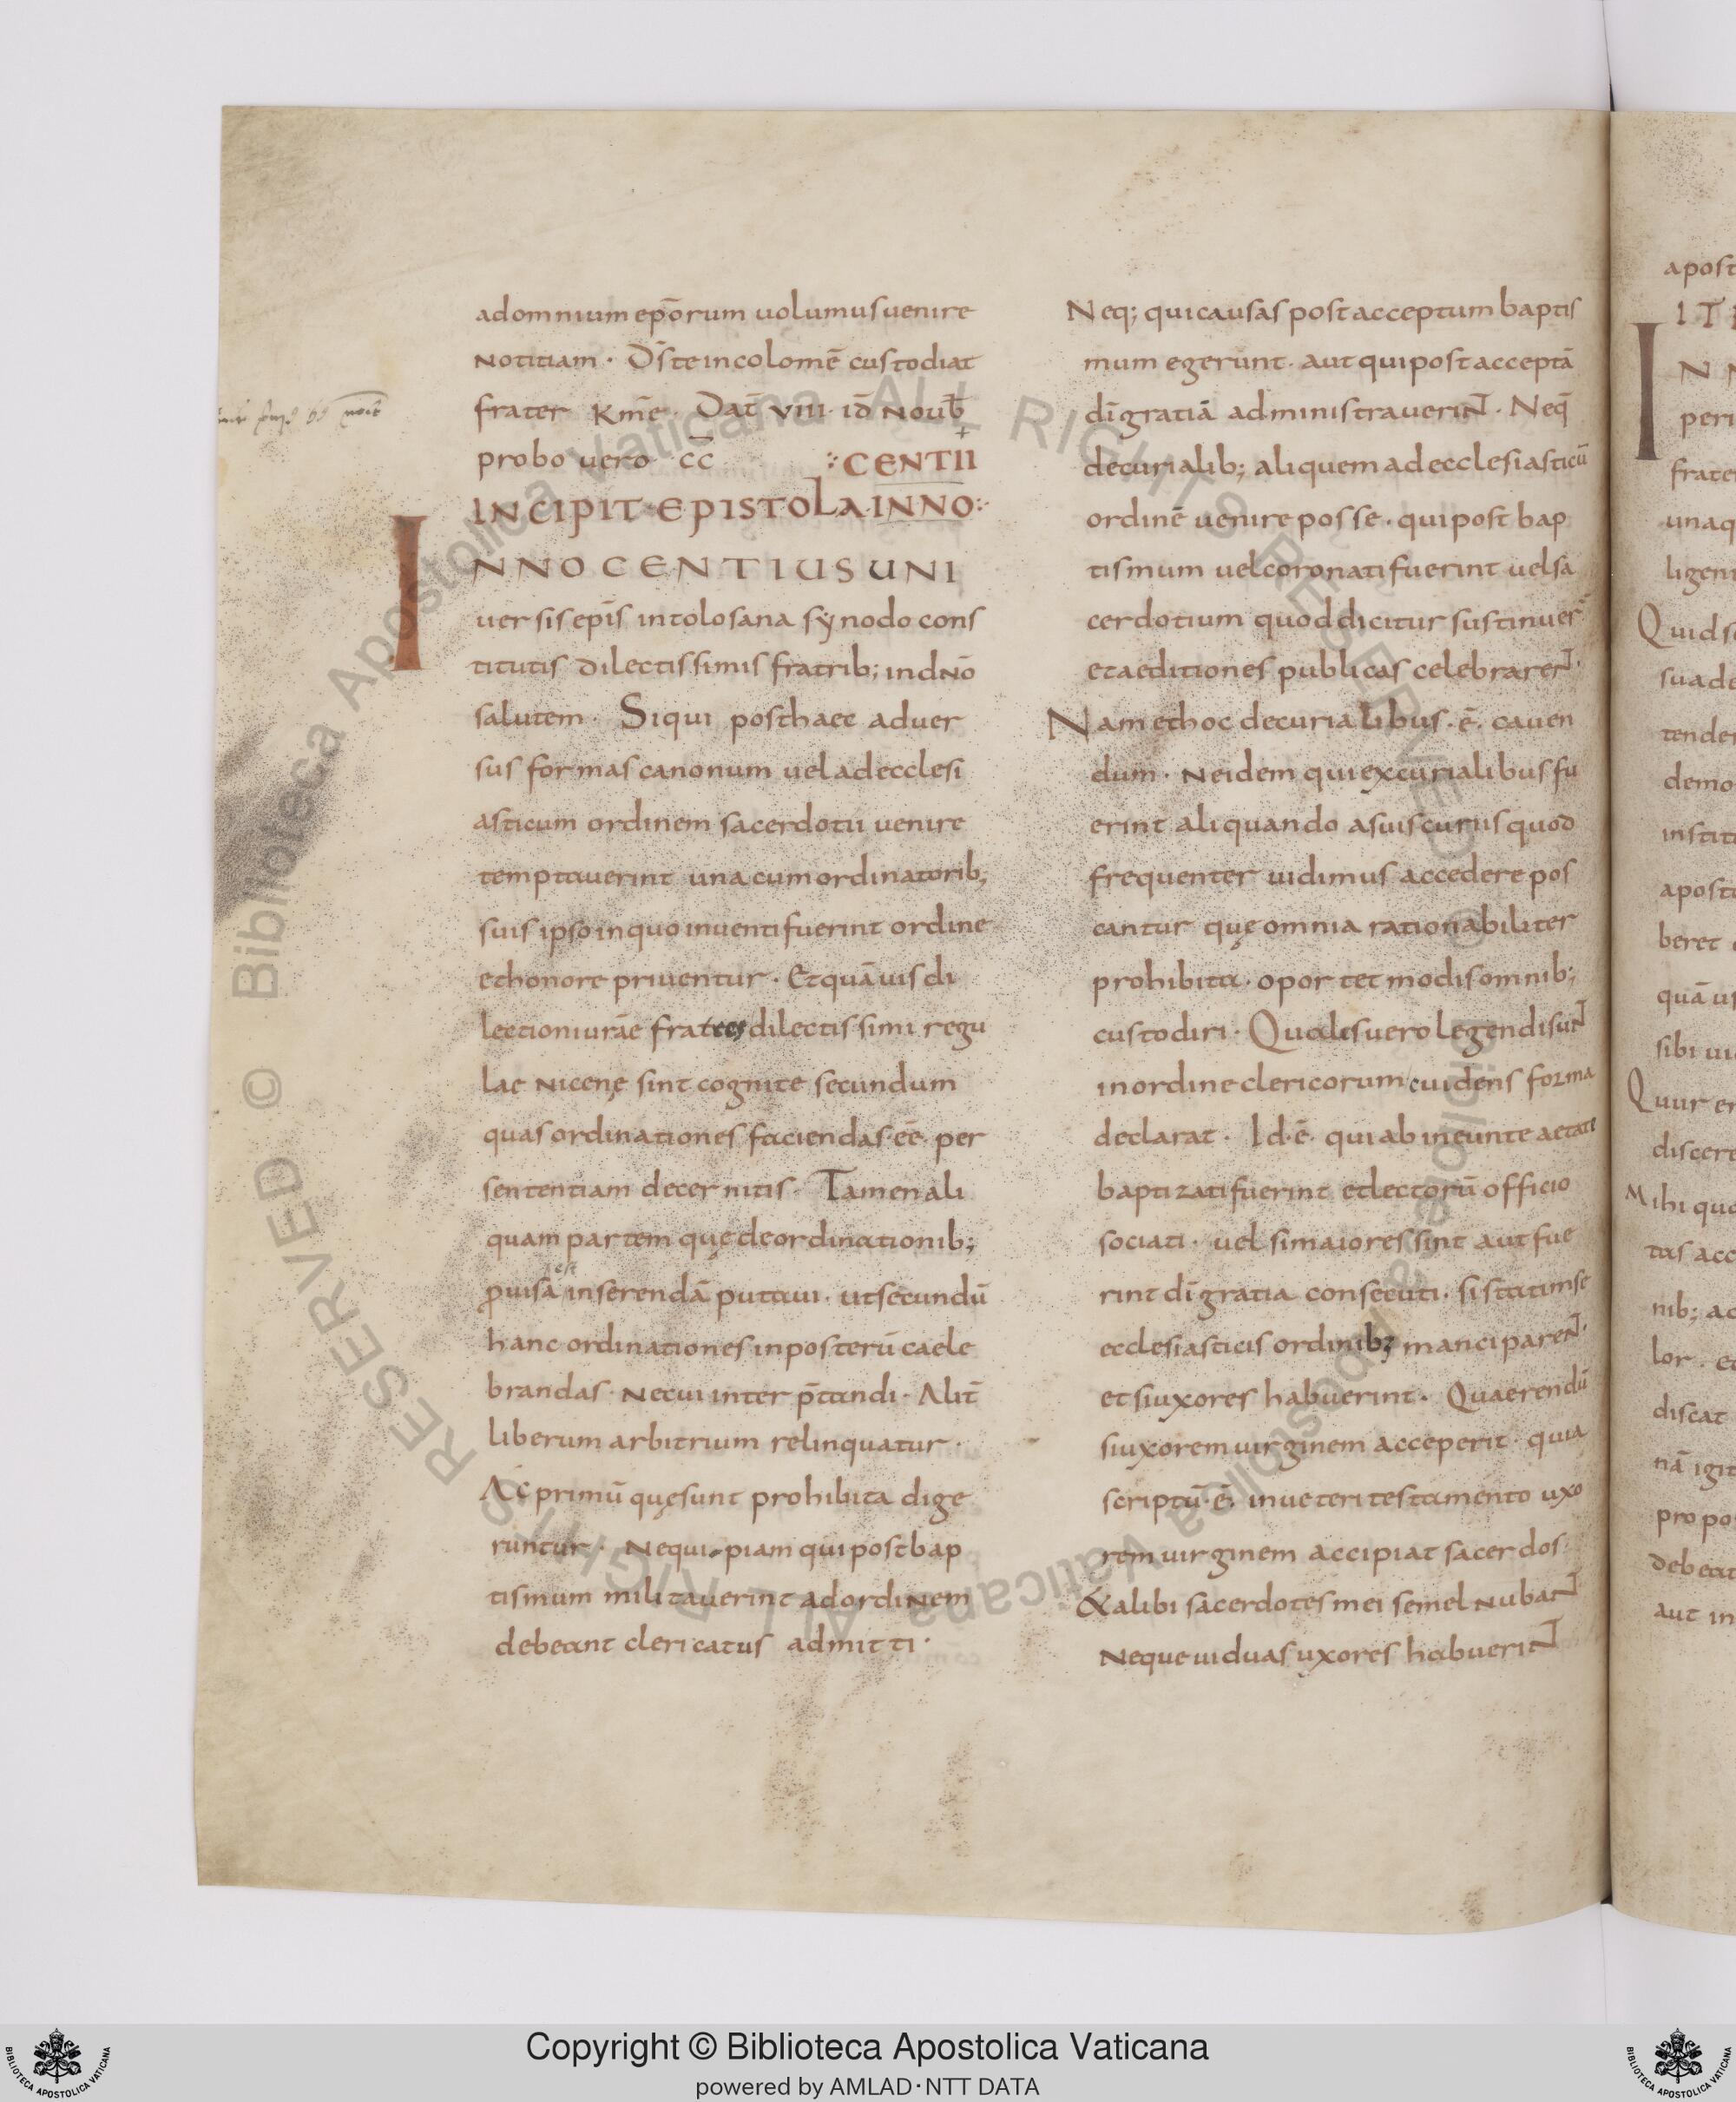 adomnium epōrum uolumus uenire
notitiam · D̄s te incolomē custodiat
frater km̄e · Dat̄ VIII · id̄ noub̄
probo uero c̄c̄ :CENTII
INCIPIT·EPISTOLA·INNO:
INNOCENTIUS UNI
uersis epīs in tolosana synodo cons
titutis dilectissimis fratrib; in dn̄o
salutem · Siqui posthaec aduer
sus formas canonum uel ad ecclesi
asticum ordinem sacerdotii uenire
temptauerint una cum ordinatorib;
suis ipso in quo inuenti fuerint ordine
et honore priuentur · Et quāuis di
lectioni urāe fratres dilectissimi regu
lae nicenę sint cognite secundum
quas ordinationes faciendas· eē· per
sententiam decernitis · Tamen ali
quam partem quę de ordinationib;
est
p̱uisā inserendā putaui · ut secundū
hanc ordinationes in posterū caele
brandas · nec ui inter p̄tandi · Alit̄
liberum arbitrium relinquatur ·
Ac primū quę sunt prohibita dige
runtur · nequi piam qui post bap
tismum militauerint ad ordinem
debeant clericatus admitti ·
Neq; qui causas post acceptum baptis
mum egerunt · aut qui post acceptā
dī gratiā administrauerint · Neq̄
decurialib; aliquem ad ecclesiasticū
ordinē uenire posse · qui post bap
tismum uel coronati fuerint uel sa
cerdotium quod dicitur sustinuer̄
et aeditiones publicas celebrarent ·
Nam et hoc de curialibus · ē · cauen
dum · ne idem qui ex curialibus fu
erint aliquando a suis curiis quod
frequenter uidimus accedere pos
cantur quę omnia rationabiliter
prohibita · oportet modis omnib;
custodiri · Qualis uero legendi sunt
in ordine clericorum euidens forma
declarat · Id · ē · qui ab ineunte aetate
baptizati fuerint et lectorū officio
sociati · uel si maiores sint aut fue
rint dī gratia consecuti · si statim se
ecclesiasticis ordinibz manciparent ·
et si uxores habuerint · Quaerendū
si uxorem uirginem acceperit · quia
scriptū · ē · in ueteri testamento uxo
rem uirginem accipiat sacerdos ·
& alibi sacerdotes mei semel nubant
neque uiduas uxores habuerint
apost
IT
I
N N
peri
frate
unaq
ligent
Quid s
suade
tende
demo
institu
aposto
beret
quā us
sibi ui
Quur er
discere
Mihi quo
tas acc
nib; ac
lor · et
discat
nā igit
propo
debeat
aut in
© Biblioteca Apostolica Vaticana ALL RIGHTS RESERVED
© Biblioteca Apostolica Vaticana ALL RIGHTS RESERVED
Copyright © Biblioteca Apostolica Vaticana
powered by AMLAD·NTT DATA
BIBLIOTECA APOSTOLICA VATICANA
BIBLIOTECA APOSTOLICA VATICANA